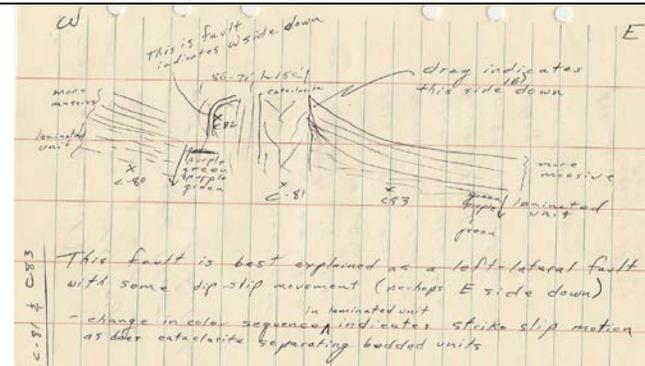 W
E
This is fault
indicates W side down
50-75' 
cataclasite
drag indicates
this (E) side down
more
massive
laminated
unit
C-80
C82
purple
green
purple
green
C-81
C83
more
massive
green
purple
green
laminated
unit
This fault is best explained as a left-lateral fault
with some dip-slip movement (perhaps E side down)
- change in color sequence in laminated unit indicates strike slip motion
as does cataclasite separating bedded units
C-81 & C83